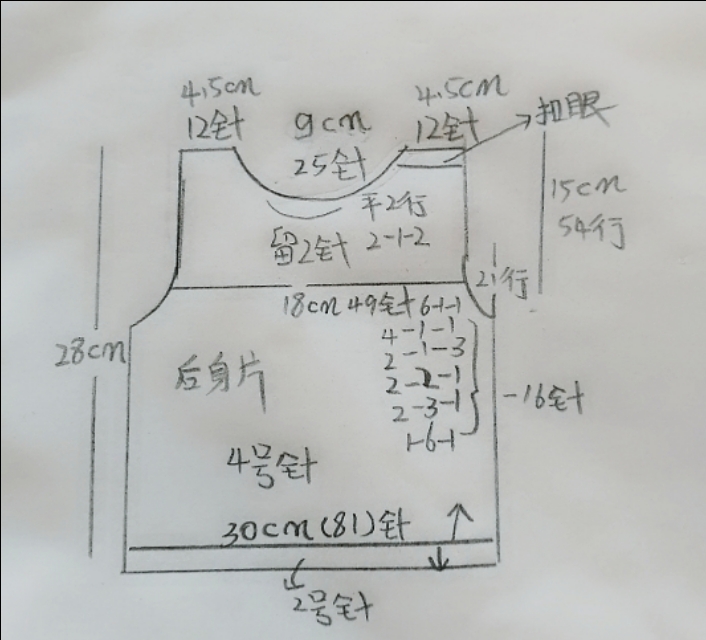 4.5cm
12针
9cm
25针
4.5cm
12针
扣眼
15cm
54行
平2行
留2针
2-1-2
21行
18cm 49针
6-1-1
4-1-1
2-1-3
2-2-1
2-3-1
1-6-1
-16针
28cm
后身片
4号针
30cm(81)针
2号针